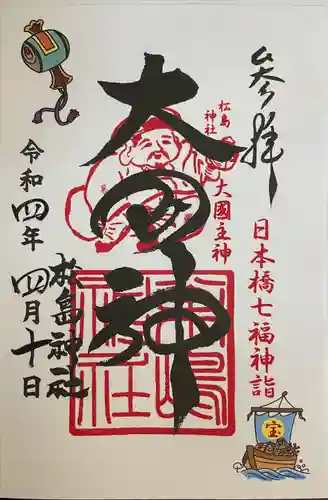 参拝
日本橋七福神詣
松島神社
大國主神
大黒神
松島神社
令和四年四月十日
宝
松島神社